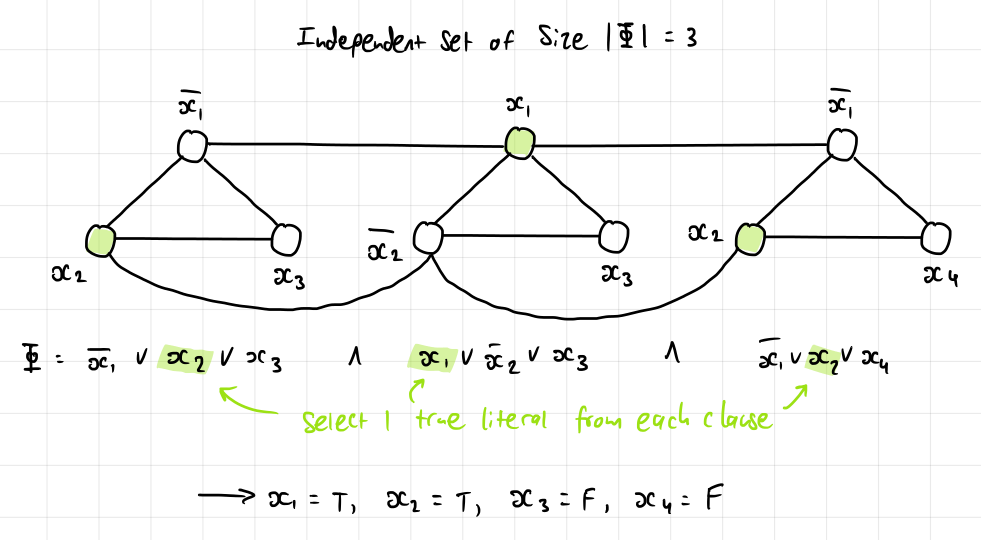 Independent Set of Size |Φ| = 3
x̄₁ x₁ x̄₁
x₂ x₃ x̄₂ x₃ x₂ x₄
Φ = x̄₁ ∨ x₂ ∨ x₃ ∧ x₁ ∨ x̄₂ ∨ x₃ ∧ x̄₁ ∨ x₂ ∨ x₄
Select 1 true literal from each clause
→ x₁ = T, x₂ = T, x₃ = F, x₄ = F